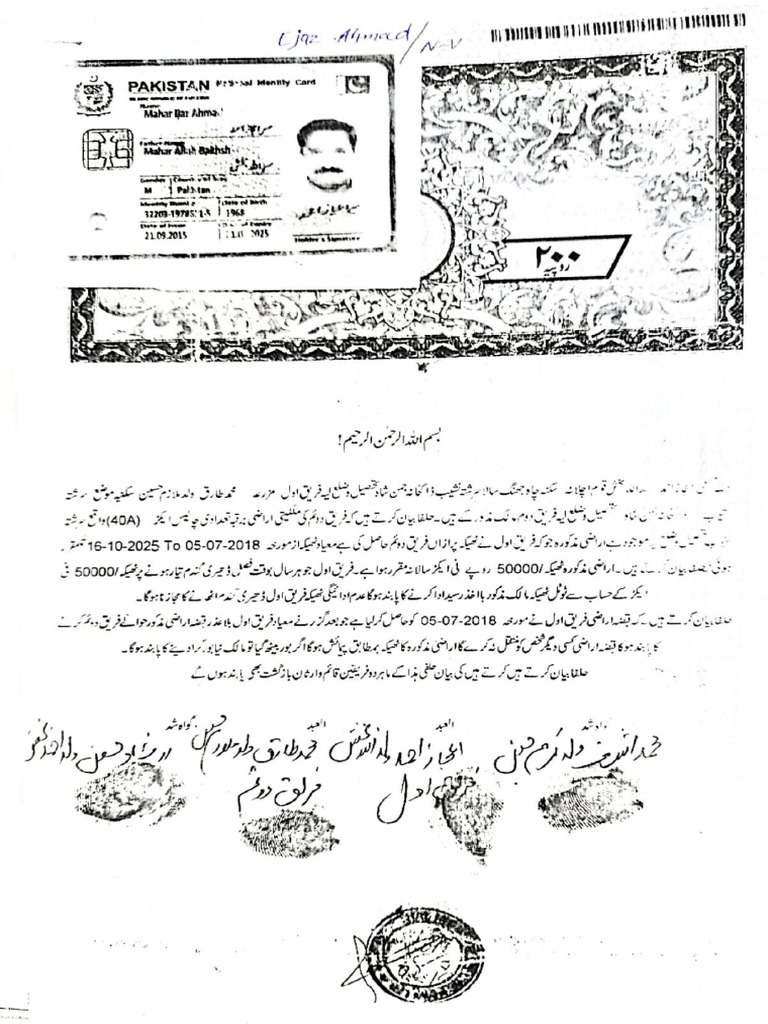 Ejaz Ahmad/
PAKISTAN National Identity Card
ISLAMIC REPUBLIC OF PAKISTAN
Name
Mahar Ijaz Ahmad
Father Name
Mahar Allah Bakhsh
Gender Country of Stay
M Pakistan
Identity Number Date of Birth
1968
Date of Issue Date of Expiry
21.09.2015 2025
Holder's Signature
۲۰۰
روپیہ
بسم اللہ الرحمٰن الرحیم!
اعجاز احمد ولد اللہ بخش قوم اچلانہ سکنہ چاہ جھنگ سالا سرشتہ نشیب ڈاکخانہ جمن شاہ تحصیل وضلع لیہ فریق اول مزرعہ محمد طارق ولد ملازم حسین سکنیہ موضع سرشتہ
نشیب ڈاکخانہ جمن شاہ تحصیل وضلع لیہ فریق دوم مالک مذکور کے ہیں۔ حلفا بیان کرتے ہیں کہ فریق دوئم کی ملکیتی اراضی برقبہ تعدادی چالیس ایکڑ (40A) واقع سرشتہ
موجود ہے اراضی مذکورہ جو کہ فریق اول نے ٹھیکہ پر ازاں فریق دوئم حاصل کی ہے معیاد ٹھیکہ از مورخہ 05-07-2018 To 16-10-2025
ہوئی بیان کرتے ہیں۔ اراضی مذکورہ ٹھیکہ /50000 روپے فی ایکڑ سالانہ مقرر ہوا ہے۔ فریق اول جو ہر سال بوقت فصل ڈھیری گندم تیار ہونے پر ٹھیکہ /50000 فی
ایکڑ کے حساب سے ٹوٹل ٹھیکہ مالک مذکور با اخذ رسید ادا کرنے کا پابند ہوگا عدم ادائیگی ٹھیکہ فریق اول ڈھیری گندم اٹھانے کا مجاز نا ہوگا۔
حلفا بیان کرتے ہیں کہ قبضہ اراضی فریق اول نے مورخہ 05-07-2018 کو حاصل کر لیا ہے جو بعد گزرنے معیاد فریق اول بلا عذر قبضہ اراضی مذکور حوالے فریق دوئم کرنے
کا پابند ہوگا قبضہ اراضی کسی دیگر شخص کو منتقل نہ کرے گا اراضی مذکورہ کا ٹھیکہ بمطابق پیمائش ہوگا اگر بور بیٹھ گیا تو مالک نیا بور کرا دینے کا پابند ہوگا۔
حلفا بیان کرتے ہیں کرتے ہیں کی بیان حلفی ہذا کے ماہر دو فریقین قائم وارثان بازگشت بھی پابند ہوں گے
گواہ شد
محمد اشرف ولد کریم حسین
العبد
اعجاز احمد ولد اللہ بخش
فریق اول
العبد
محمد طارق ولد ملازم حسین
فریق دوئم
گواہ شد